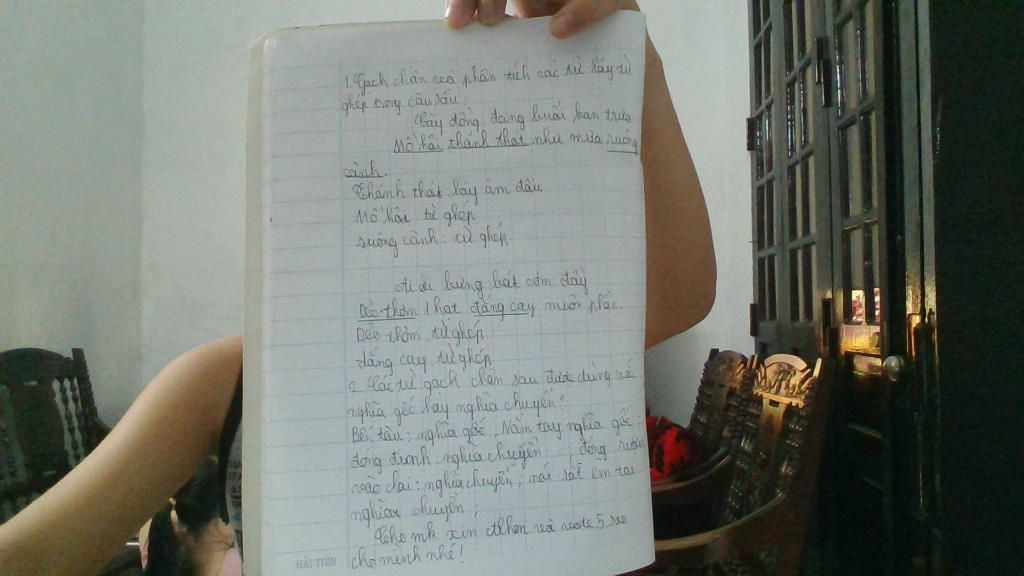 1. Gạch chân và phân tích các từ láy từ
ghép trong câu sau:
Cày đồng đang buổi ban trưa
Mồ hôi thánh thót như mưa ruộng
cành.
Thánh thót: láy âm đầu
Mồ hôi: từ ghép
ruộng cành: từ ghép
Ai ơi bưng bát cơm đầy
Dẻo thơm 1 hạt đắng cay muôn phần.
Dẻo thơm: từ ghép
đắng cay: từ ghép
2. Các từ gạch chân sau được dùng với
nghĩa gốc hay nghĩa chuyển?
Bến tàu: nghĩa gốc; Nắm tay: nghĩa gốc
đóng đinh: nghĩa chuyển; đóng rượu
vào chai: nghĩa chuyển;
nghĩa chuyển;
Cho mk xin và vote 5 sao
cho mình nhé!
HẢI TIẾN